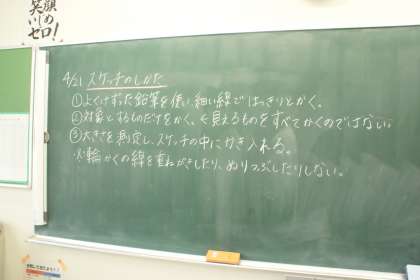 笑顔
いじめ
ゼロ!
4/21 スケッチのしかた
①よくけずった鉛筆を使い細い線ではっきりとかく。
②対象とするものだけをかく。←見えるものをすべてかくのではない。
③大きさを測定し、スケッチの中に書き入れる。
※輪かくの線を重ねがきしたり、ぬりつぶしたりしない。